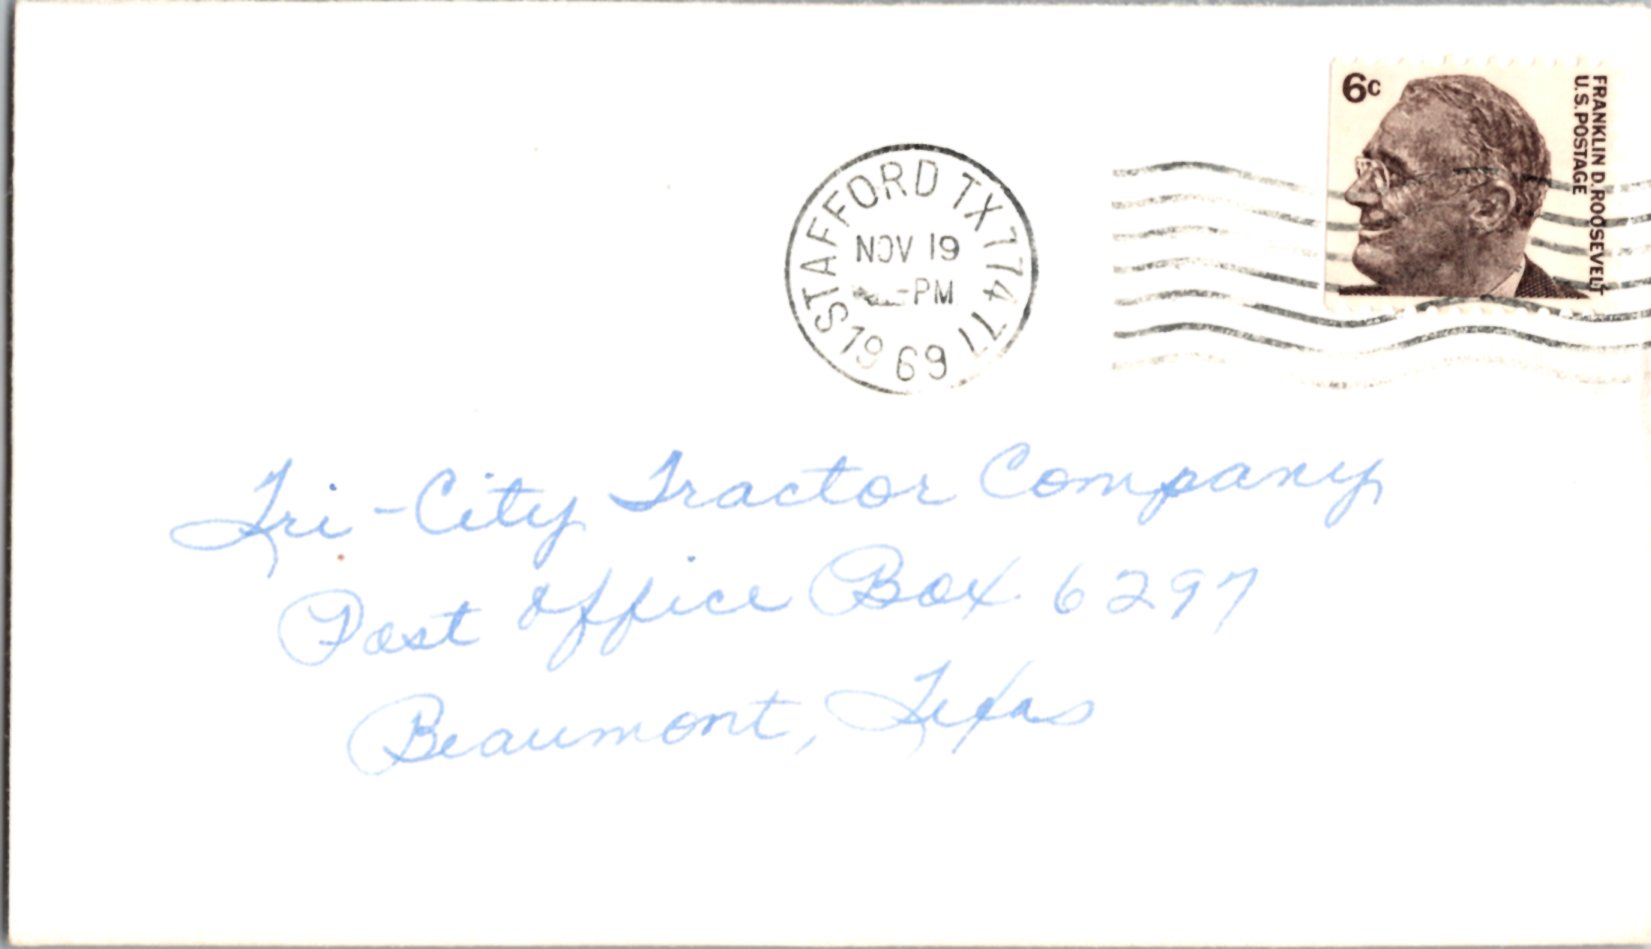 6c
FRANKLIN D. ROOSEVELT
U.S. POSTAGE
STAFFORD TX 77477
NOV 19
-PM
1969
Tri-City Tractor Company
Post Office Box 6297
Beaumont, Texas